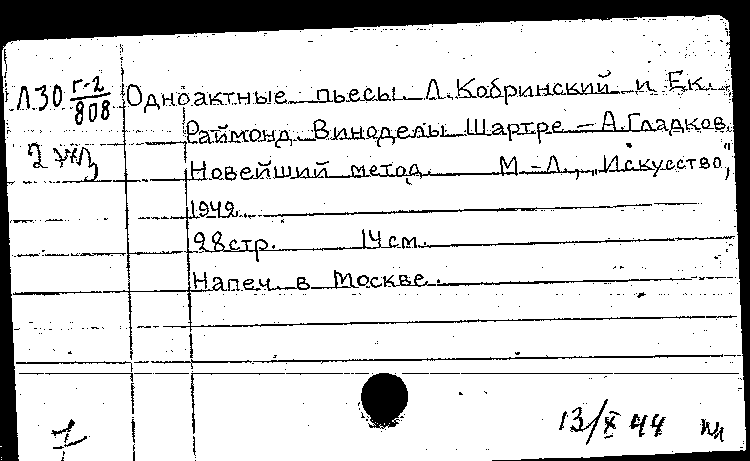 Л30 Г-2/808 Одноактные пьесы. Л. Кобринский и Ек.
Раймонд. Виноделы Шартре – А. Гладков.
2 экз
Новейший метод. М.-Л., „Искусство",
1942.
28 стр. 14 см.
Напеч. в Москве.
13/X 44